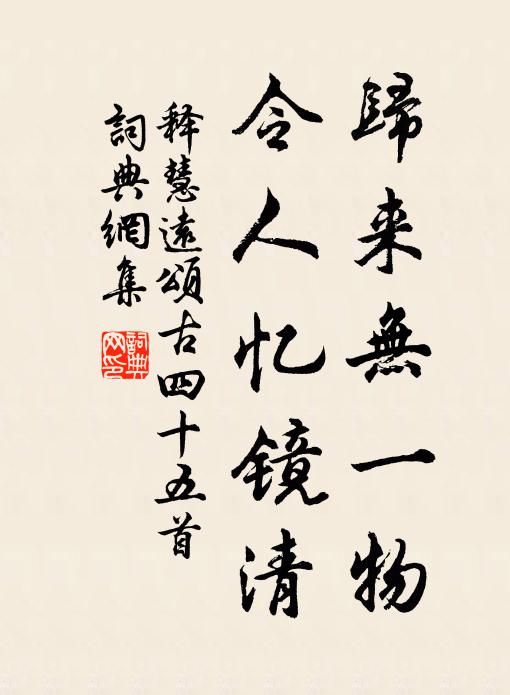 歸来無一物
令人忆镜清
释慧遠頌古四十五首
詞典網集
詞典
网印